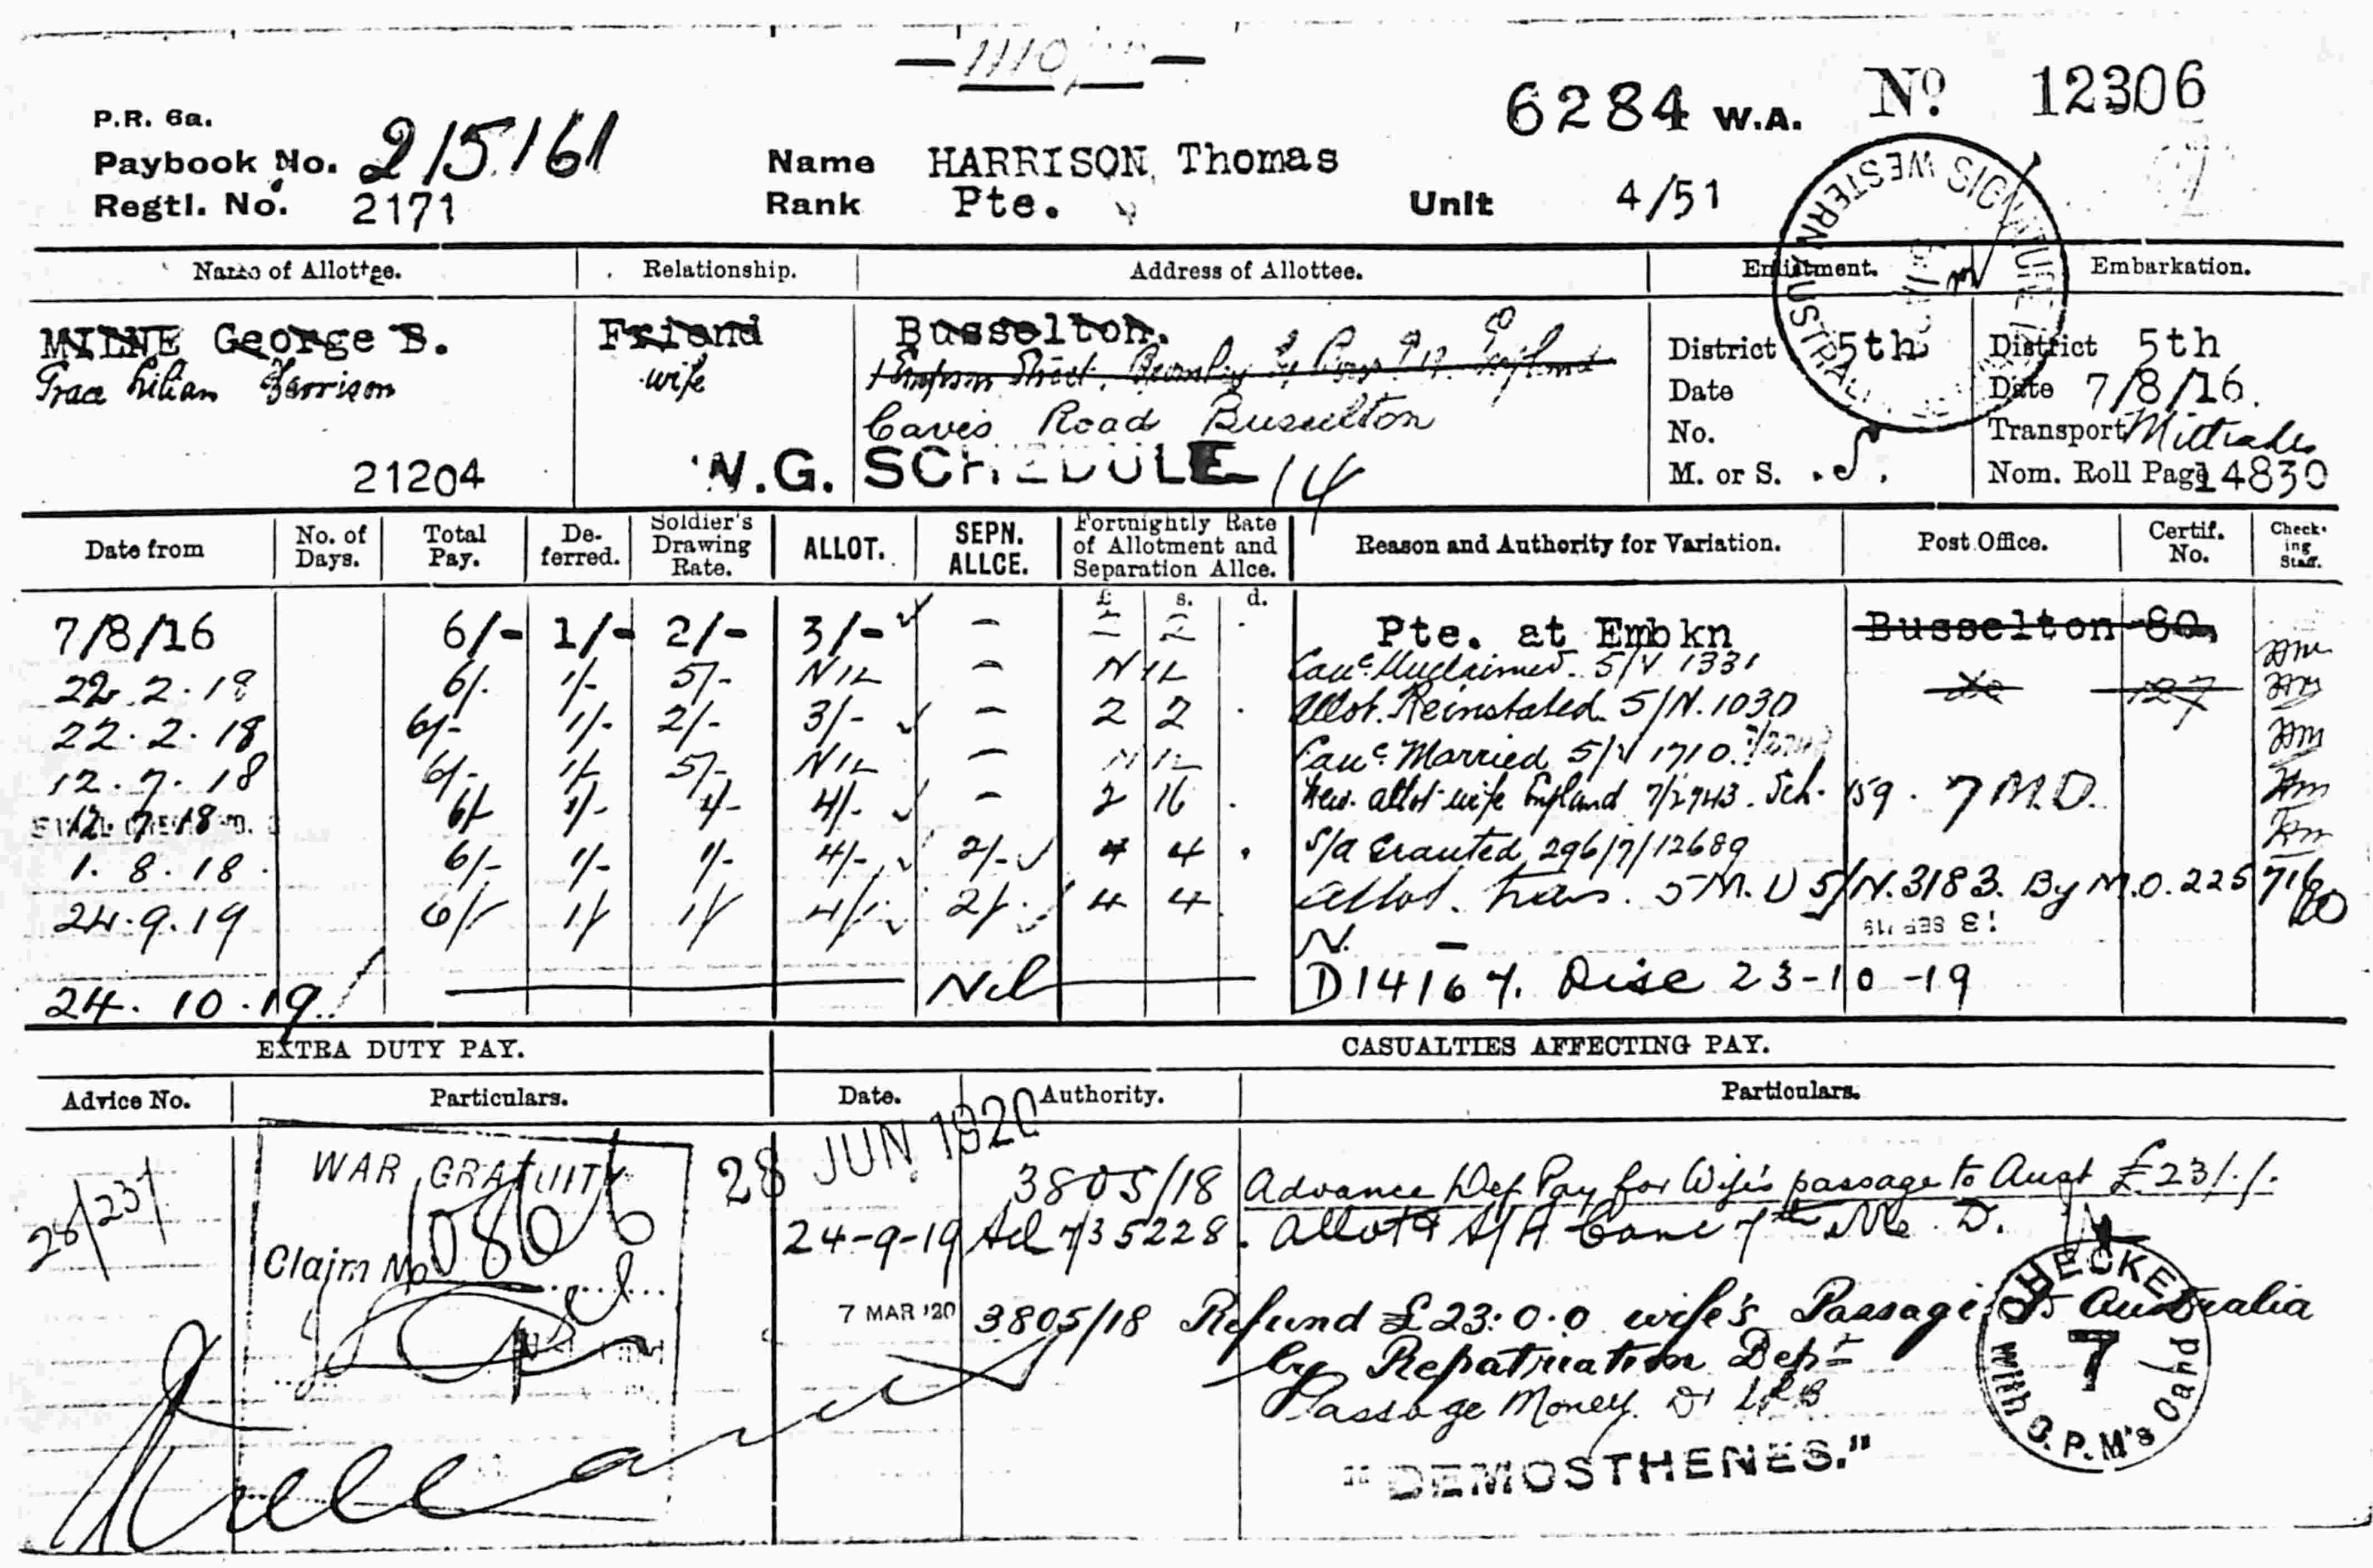 1110
6284 W.A. No. 12306
P.R. 6a.
Paybook No. 215161
Name HARRISON, Thomas
Regtl. No. 2171
Rank Pte.
Unit 4/51
SIGNATURE WESTERN AUSTRALIA
Name of Allottee. Relationship. Address of Allottee. Enlistment. Embarkation.
MILNE George B. Friend Busselton.
Grace Lilian Harrison wife Street, England
Caves Road Busselton
District 5th District 5th
Date Date 7/8/16.
No. Transport Miltiades
M. or S. S. Nom. Roll Page 14830
21204 W.G. SCHEDULE 14
Date from No. of Days. Total Pay. Deferred. Soldier's Drawing Rate. ALLOT. SEPN. ALLCE. Fortnightly Rate of Allotment and Separation Allce. Reason and Authority for Variation. Post Office. Certif. No. Checking Staff.
£ s. d.
7/8/16 6/- 1/- 2/- 3/- – 2 2 Pte. at Embkn Busselton 80.
22.2.18 6/- 1/- 5/- NIL – NIL Canc. Unclaimed. 5/V 1331
22.2.18 6/- 1/- 2/- 3/- – 2 2 Allot. Reinstated 5/N.1030 do 127
12.7.18 6/- 1/- 5/- NIL – NIL Canc Married 5/V 1710.
12.7.18 6/- 1/- 1/- 4/- – 2 16 New allot wife England 7/2743. Sch. 159. 7 M.D.
1.8.18 6/- 1/- 1/- 4/- 2/- 4 4 S/A Granted 296/7/12689
24.9.19 6/- 1/- 1/- 4/- 2/- 4 4 Allot. trans. 5 M.D 5/N.3183. By M.O. 225
N. –
13 SEP 19
24.10.19 Nil D14167. Disc 23-10-19
EXTRA DUTY PAY. CASUALTIES AFFECTING PAY.
Advice No. Particulars. Date. Authority. Particulars.
28 JUN 1920
26/231
WAR GRATUITY
Claim No. 10866
3805/18 Advance Def Pay for Wife's passage to Aust £23/./.
24-9-19 Ad 7/35228. Allot & S/A Canc 7th M. D.
7 MAR '20 3805/18 Refund £23.0.0 wife's Passage to Australia
by Repatriation Dept
Passage Money
"DEMOSTHENES."
CHECKED 7 with D.P.M's Copy